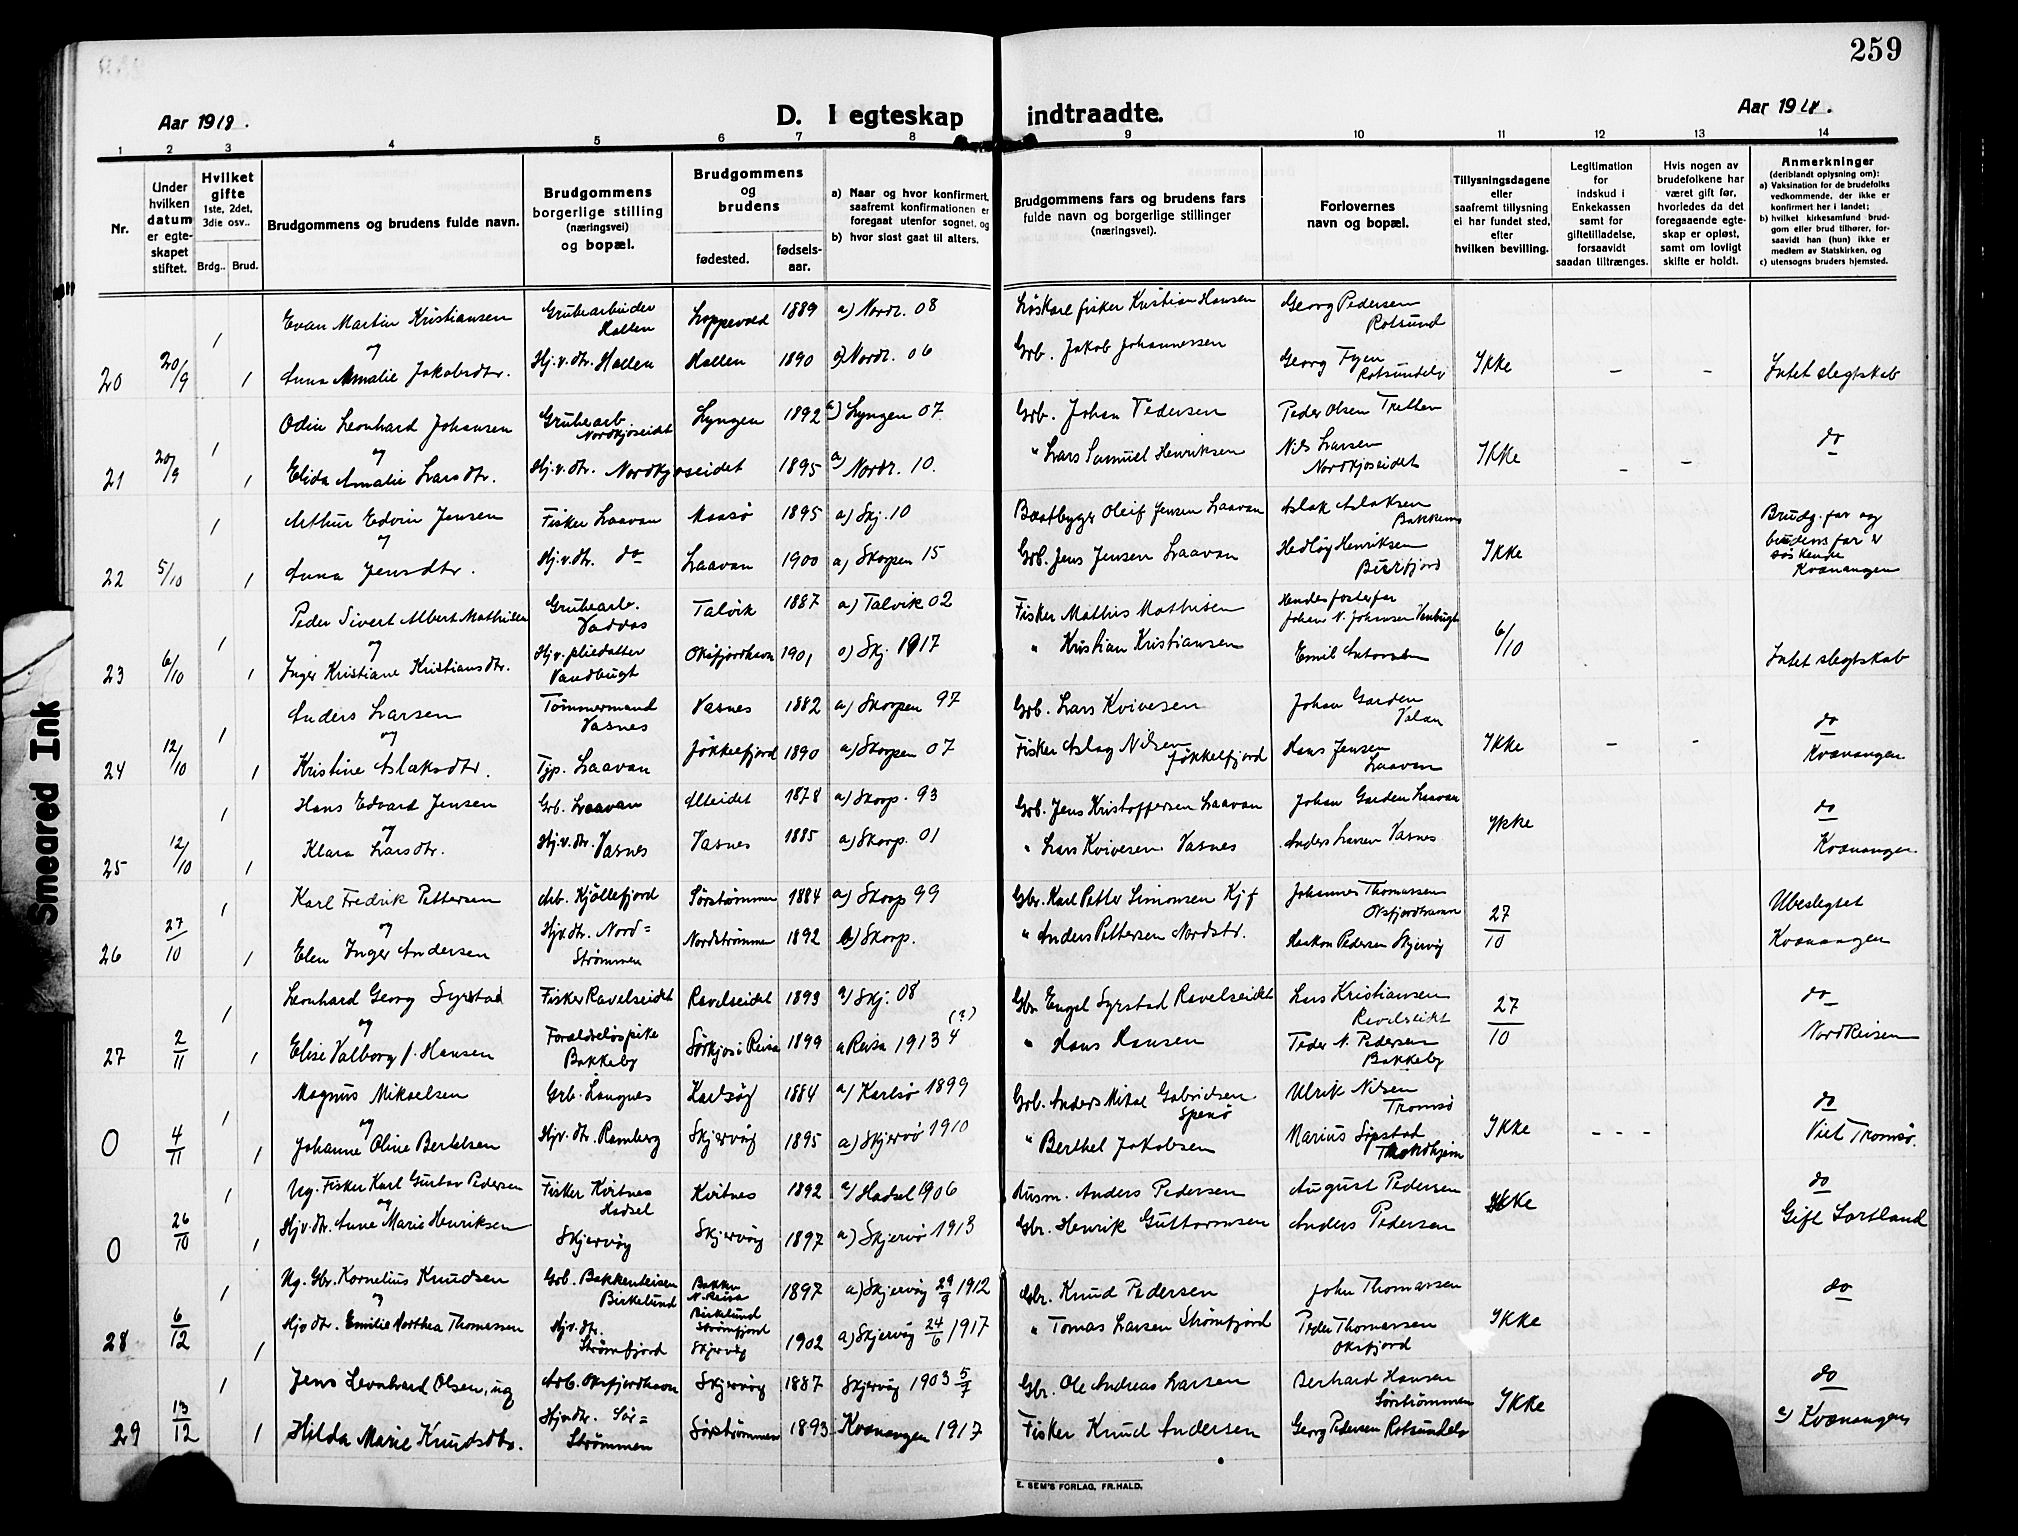 259
Aar 1918.
D. I egteskap indtraadte.
Aar 1918.
1 2 3 4 5 6 7 8 9 10 11 12 13 14
Nr.
Under hvilken datum er egteskapet stiftet.
Hvilket gifte 1ste, 2det, 3die osv..
Brdg.. Brud.
Brudgommens og brudens fulde navn.
Brudgommens borgerlige stilling (næringsvei) og bopæl.
Brudgommens og brudens
fødested.
fødselsaar.
a) Naar og hvor konfirmert, saafremt konfirmationen er foregaat utenfor sognet, og
b) hvor sidst gaat til alters.
Brudgommens fars og brudens fars fulde navn og borgerlige stillinger (næringsvei).
Forlovernes navn og bopæl.
Tillysningsdagene eller saafremt tillysning ei har fundet sted, efter hvilken bevilling.
Legitimation for indskud i Enkekassen samt for giftetilladelse, forsaavidt saadan tiltrænges.
Hvis nogen av brudefolkene har været gift før, hvorledes da det foregaaende egteskap er opløst, samt om lovligt skifte er holdt.
Anmerkninger (deriblandt oplysning om):
a) Vaksination for de brudefolks vedkommende, der ikke er konfirmert her i landet;
b) hvilket kirkesamfund brudgom eller brud tilhører, forsaavidt han (hun) ikke er medlem av Statskirken, og
c) utensogns bruders hjemsted.
Evan Martin Kristiansen Grubearbeider Hallen Loppevold 1889 a) Nordr. 08 Løskare fisker Kristian Hansen Georg Pedersen Rotsund
og
20 20/9 1 1 Anna Amalie Jakobsdtr. Hj.v.dtr. Hallen Hallen 1890 a) Nordr. 06 Grb. Jakob Johannessen Georg Fyen Rotsundelv Ikke – – Intet slegtskab
Odin Leonhard Johansen Grubearb. Nordkjoseidet Lyngen 1892 a) Lyngen 07 Grb. Johan Pedersen Peder Olsen Tretten do
og
21 20/9 1 1 Elida Amalie Larsdtr. Hj.v.dtr. Nordkjoseidet 1895 a) Nordr. 10. " Lars Samuel Henriksen Nils Larsen Nordkjoseidet Ikke – –
Arthur Edvin Jensen Fisker Laavan Maasø 1895 a) Skj. 10 Baatbygger Oleif Jensen Laavan Aslak Aslaksen Bakkems Brudg. far og brudens far er søskende
og
22 5/10 1 1 Anna Jensdtr. Hj.v.dtr. do Laavan 1900 a) Skorpen 15 Grb. Jens Jensen Laavan Hedløg Henriksen Burfjord Ikke Kvænangen
Peder Sivert Albert Mathisen Grubearb. Vaddas Talvik 1887 a) Talvik 02 Fisker Mathis Mathisen Hendes fosterfar Johan N. Johansen Vanbugt
og
23 6/10 1 1 Inger Kristiane Kristiansdtr. Hj.v. pliedatter Vandbugt Oksfjordhavn 1901 a) Skj. 1917 " Kristian Kristiansen Emil Antonsen 6/10 Intet slegtskab
Anders Larsen Tømmermand Vasnes Vasnes 1882 a) Skorpen 97 Grb. Lars Kvivesen Johan Garden do
og
24 12/10 1 1 Kristine Aslaksdtr. Tjp. Laavan Jøkkelfjord 1890 a) Skorpen 07 Fisker Aslag Nilsen Jøkkelfjord Hans Jensen Laavan Ikke – – Kvænangen
Hans Edvard Jensen Grb. Laavan Alteidet 1878 a) Skorp. 93 Grb. Jens Kristoffersen Laavan Johan Garden Laavan do
og
25 12/10 1 1 Klara Larsdtr. Hj.v.dtr. Vasnes Vasnes 1885 a) Skorp. 01 " Lars Kvivesen Vasnes Anders Larsen Vasnes Ikke Kvænangen.
Karl Fredrik Pettersen Arb. Kjøllefjord Sørstrømmen 1884 a) Skorp 99 Gbr. Karl Petter Simonsen Kjf Johannes Thomassen Oksfjordhavn Ubeslegtet
og
26 27/10 1 1 Elen Inger Andersen Hjv.dtr. Nord= Strømmen Nordstrømmen 1892 b) Skorp. " Anders Pettersen Nordstr. Haakon Pedersen Skjervøy 27/10 Kvænangen
Leonhard Georg Syrstad Fisker Ravelseidet Ravelseidet 1893 a) Skj. 08 Gbr. Engel Syrstad Ravelseidet Lars Kristiansen Ravelseidet do
og
27 2/11 1 1 Elise Valborg f. Hansen Forældreløs pike Bakkeby Sørkjos i Reisa 1899 a Reisa 1913 4 (?) " Hans Hansen Peder N. Pedersen Bakkeby 27/10 Nordreisen
Magnus Mikaelsen Grb. Langnes Karlsøy 1884 a) Karlsø 1899 Grb. Anders Mikal Gabrielsen Spenø Ulrik Nilsen Tromsø do
og
0 4/11 1 1 Johanne Oline Bertelsen Hjv. dtr. Ramberg Skjervøy 1895 a) Skjervø 1910 " Berthel Jakobsen Marius Sipstad Trondhjem Ikke – – – Viet Tromsø.
Ug. Fisker Karl Gustav Pedersen Fisker Kvitnes Hadsel Kvitnes 1892 a) Hadsel 1906 Husm. Anders Pedersen August Pedersen do
og
0 26/10 1 1 Hjv.dtr. Anne Marie Henriksen Skjervøy Skjervøy 1897 a) Skjervø 1913 Gbr. Henrik Guttormsen Anders Pedersen Ikke Gift Sortland
Ug. Gbr. Kornelius Knudsen Grb. Bakkenteisen Birkelund Bakken N. Reisa Birkelund 1897 a) Skjervøy 29/9 1912 Gbr. Knud Pedersen John Thomassen do
og
28 6/12 1 1 Hjv dtr. Emilie Northea Thomassen Hj.v. dtr. Strømfjord Strømfjord Skjervøy 1902 a) Skjervøy 24/6 1917 " Tomas Larsen Strømfjord Peder Thomassen Oksfjord Ikke
Jens Leonhard Olsen, ug Arb. Oksfjordhavn Skjervøy 1887 Skjervøy 1903 5/7 Gbr. Ole Andreas Larsen Berhard Hansen Sørstrømmen do
29 13/12 1 1 Hilda Marie Knudsdtr. Hjv.dtr. Sør= Strømmen Sørstrømmen 1893 Kvænangen 1917 Fisker Knud Andersen Georg Pedersen Rotsundelv Ikke c) Kvænangen
E. SEM'S FORLAG, FR.HALD.
Smeared Ink